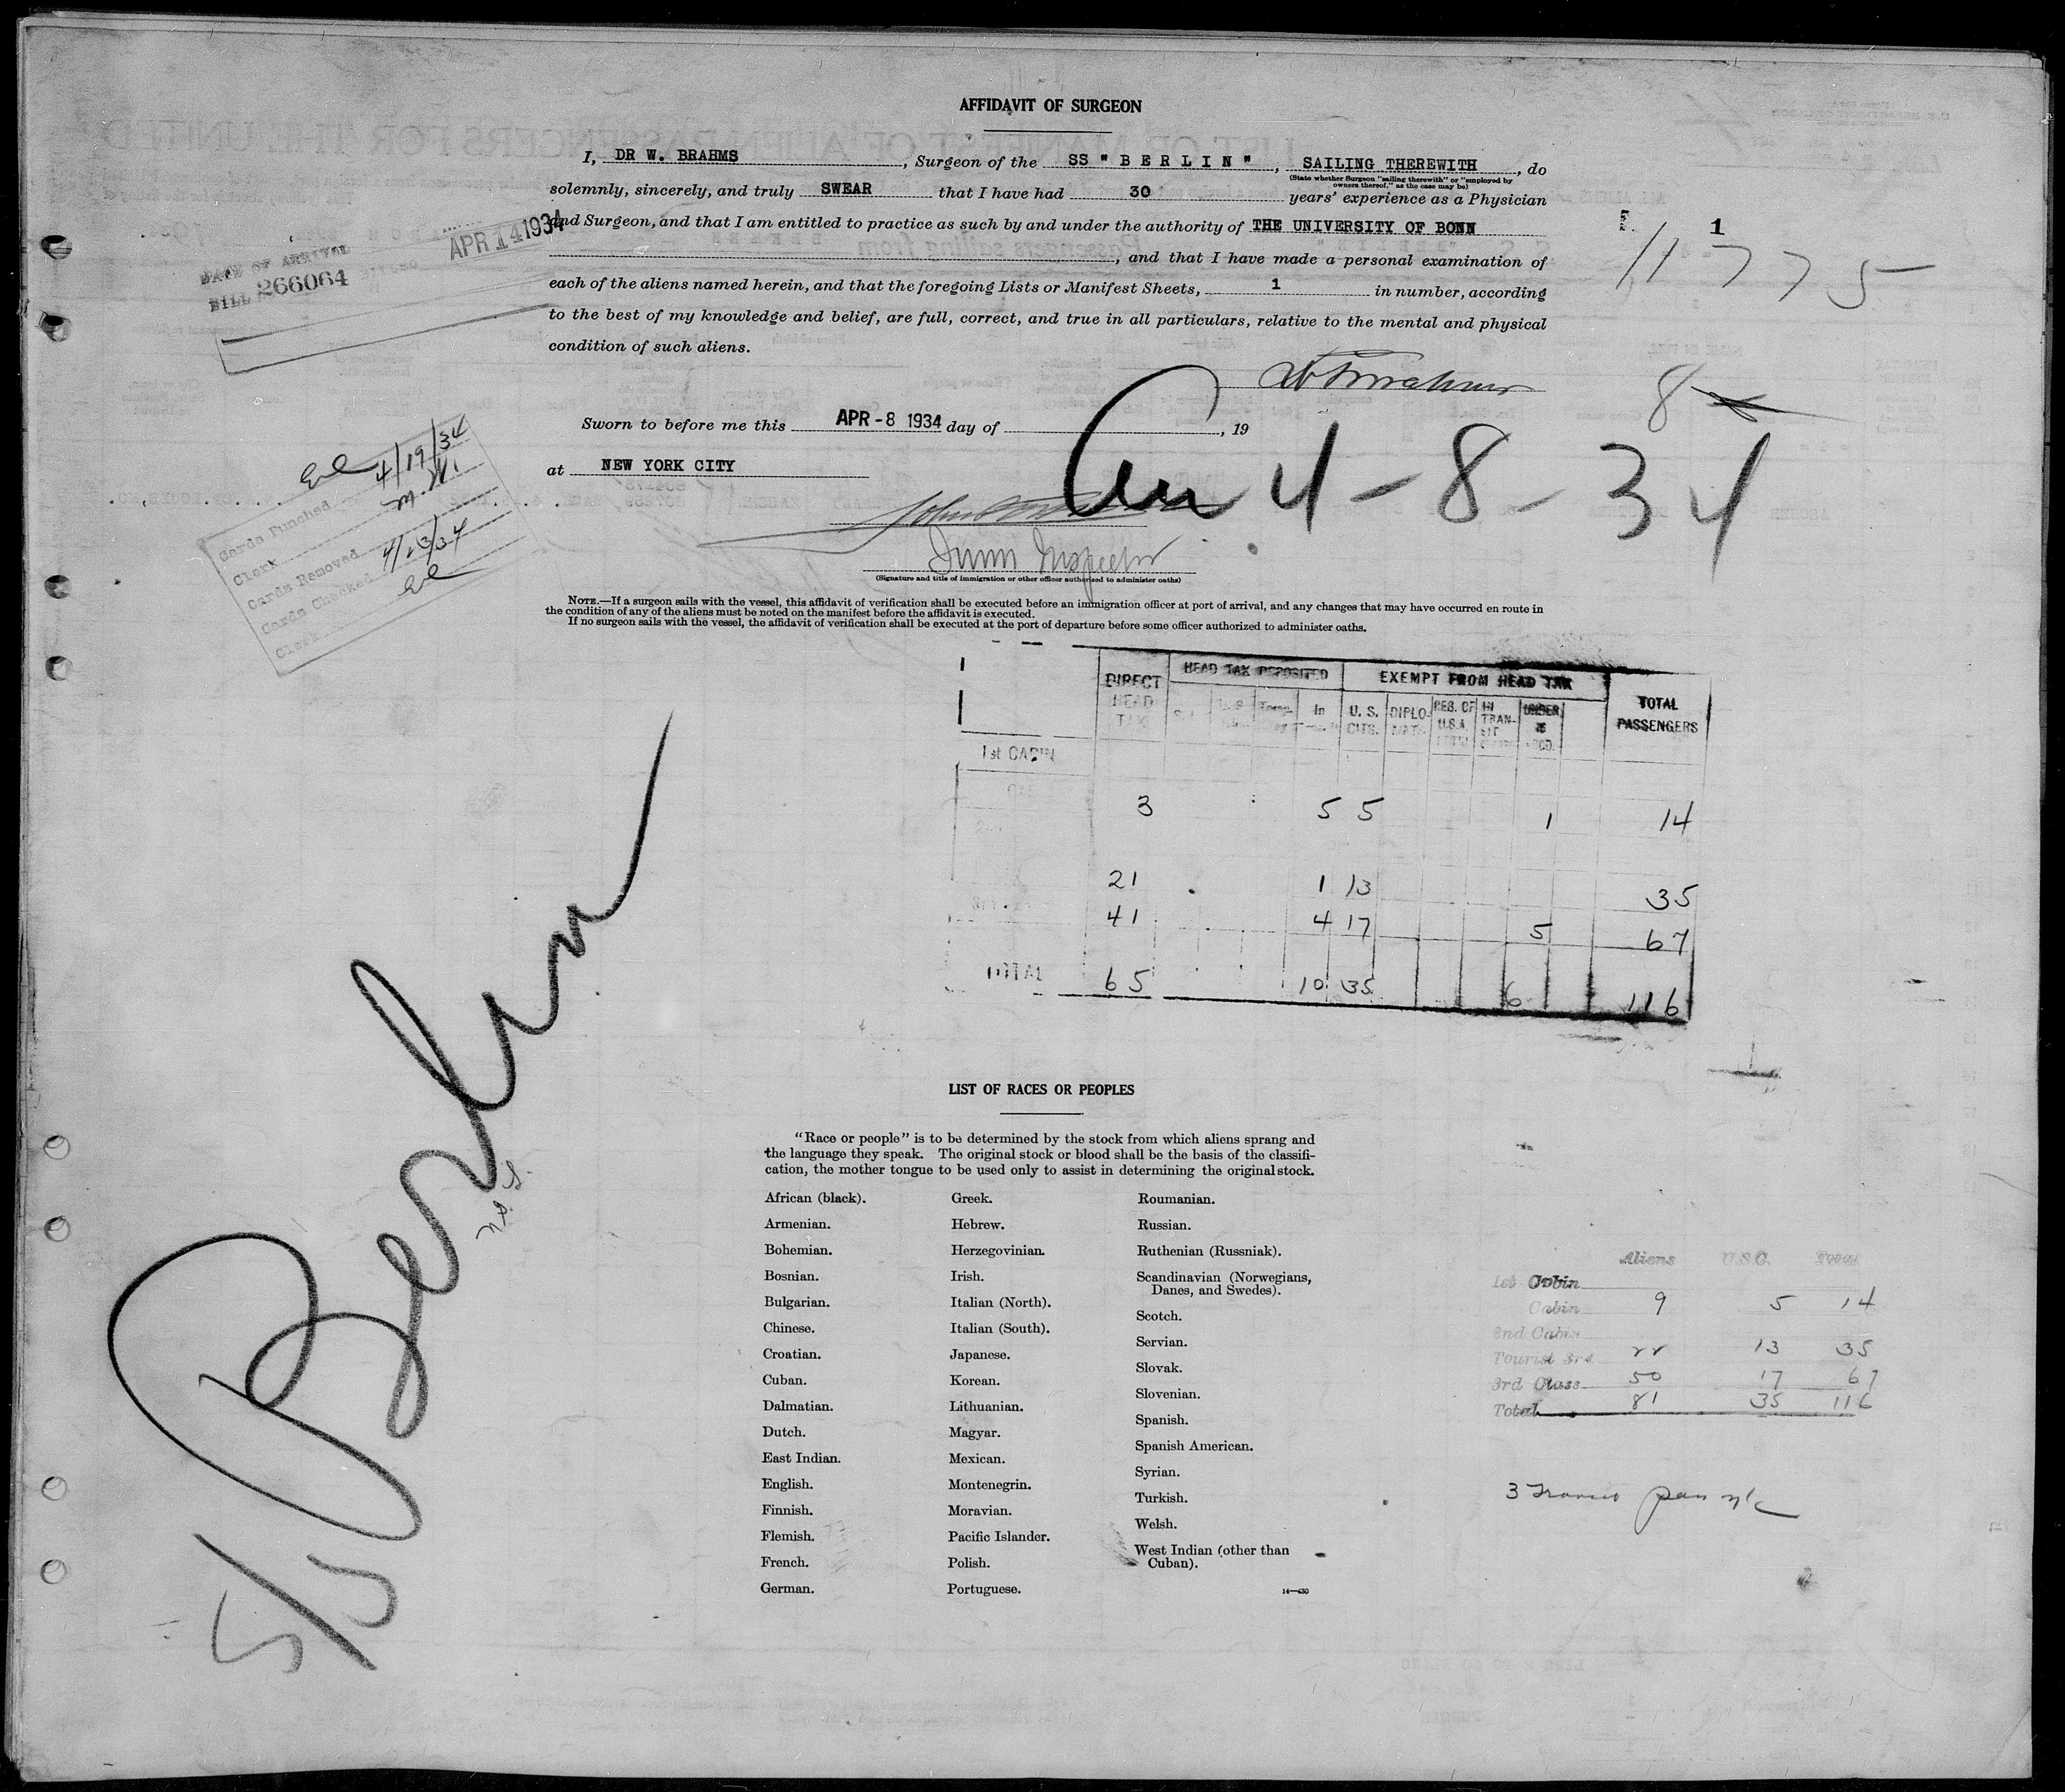 AFFIDAVIT OF SURGEON
I, DR W. BRAHMS, Surgeon of the SS "BERLIN", SAILING THEREWITH, do
(State whether Surgeon "sailing therewith" or "employed by
owners thereof," as the case may be)
solemnly, sincerely, and truly SWEAR that I have had 30 years' experience as a Physician
and Surgeon, and that I am entitled to practice as such by and under the authority of THE UNIVERSITY OF BONN
, and that I have made a personal examination of
each of the aliens named herein, and that the foregoing Lists or Manifest Sheets, 1 in number, according
to the best of my knowledge and belief, are full, correct, and true in all particulars, relative to the mental and physical
condition of such aliens.
APR 14 1934
DATE OF ARRIVAL
BILL 266064
1
11775
8
Sworn to before me this APR-8 1934 day of , 19
at NEW YORK CITY
4-8-34
Inspector
(Signature and title of immigration or other officer authorized to administer oaths)
Cards Punched 4/19/34
Clerk
Cards Removed
Cards Checked
Clerk
NOTE.—If a surgeon sails with the vessel, this affidavit of verification shall be executed before an immigration officer at port of arrival, and any changes that may have occurred en route in
the condition of any of the aliens must be noted on the manifest before the affidavit is executed.
If no surgeon sails with the vessel, the affidavit of verification shall be executed at the port of departure before some officer authorized to administer oaths.
DIRECT HEAD TAX
HEAD TAX DEPOSITED
EXEMPT FROM HEAD TAX
TOTAL PASSENGERS
In
U. S. CITS.
DIPLO-
RES. OF U.S.A.
IN TRAN-SIT
UNDER
1st CABIN
3 5 5 1 14
21 1 13 35
41 4 17 5 67
TOTAL 65 10 35 6 116
S/S Berlin
LIST OF RACES OR PEOPLES
"Race or people" is to be determined by the stock from which aliens sprang and
the language they speak. The original stock or blood shall be the basis of the classifi-
cation, the mother tongue to be used only to assist in determining the original stock.
African (black).
Armenian.
Bohemian.
Bosnian.
Bulgarian.
Chinese.
Croatian.
Cuban.
Dalmatian.
Dutch.
East Indian.
English.
Finnish.
Flemish.
French.
German.
Greek.
Hebrew.
Herzegovinian.
Irish.
Italian (North).
Italian (South).
Japanese.
Korean.
Lithuanian.
Magyar.
Mexican.
Montenegrin.
Moravian.
Pacific Islander.
Polish.
Portuguese.
Roumanian.
Russian.
Ruthenian (Russniak).
Scandinavian (Norwegians,
Danes, and Swedes).
Scotch.
Servian.
Slovak.
Slovenian.
Spanish.
Spanish American.
Syrian.
Turkish.
Welsh.
West Indian (other than
Cuban).
14—430
Aliens U.S.C. Total
1st Cabin
Cabin 9 5 14
2nd Cabin
Tourist 3rd 22 13 35
3rd Class 50 17 67
Total 81 35 116
3 Transit